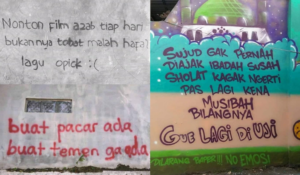 Nonton film azab tiap hari
bukannya tobat malah hapal
lagu opick :(
buat pacar ada
buat temen ga ada
SUJUD GAK PERNAH
DIAJAK IBADAH SUSAH
SHOLAT KAGAK NGERTI
PAS LAGI KENA
MUSIBAH
BILANGNYA
GUE LAGI DI UJI
NO EMOSI